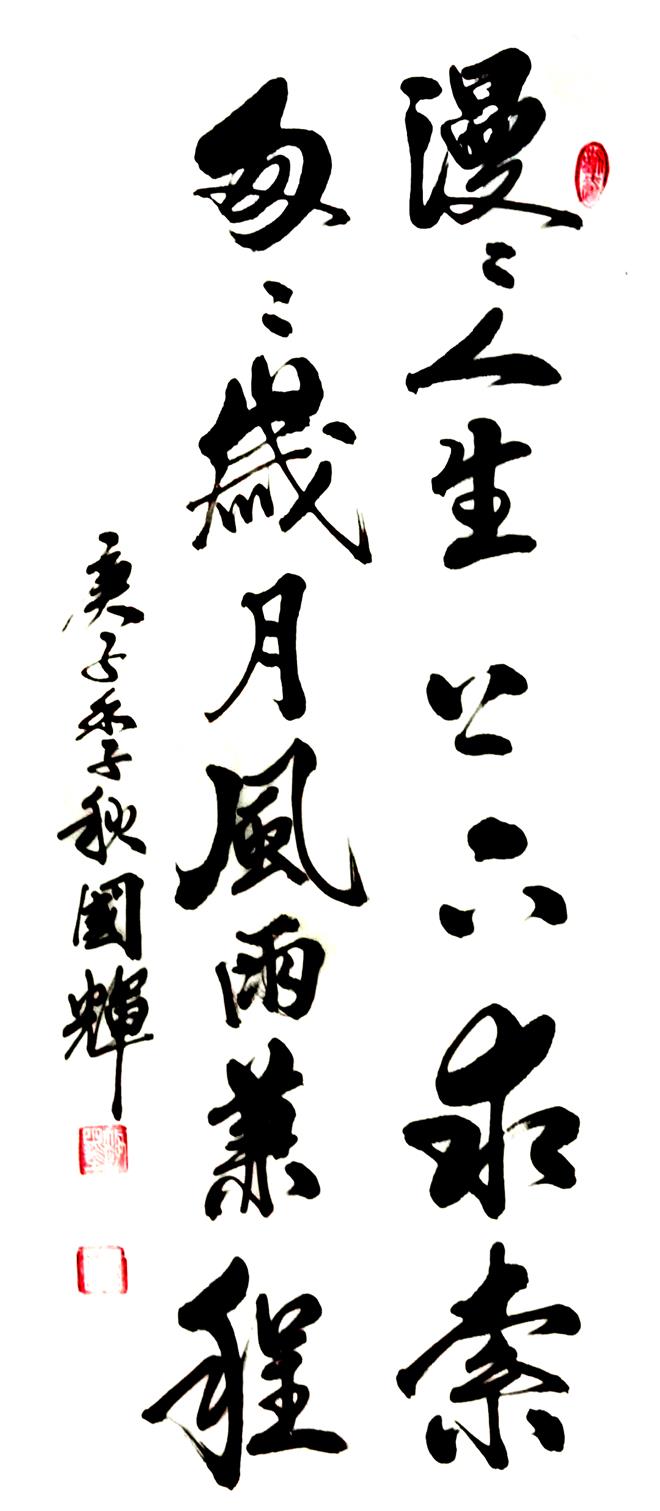 漫〻人生上下求索
匆〻歲月風雨兼程
庚子季秋國輝